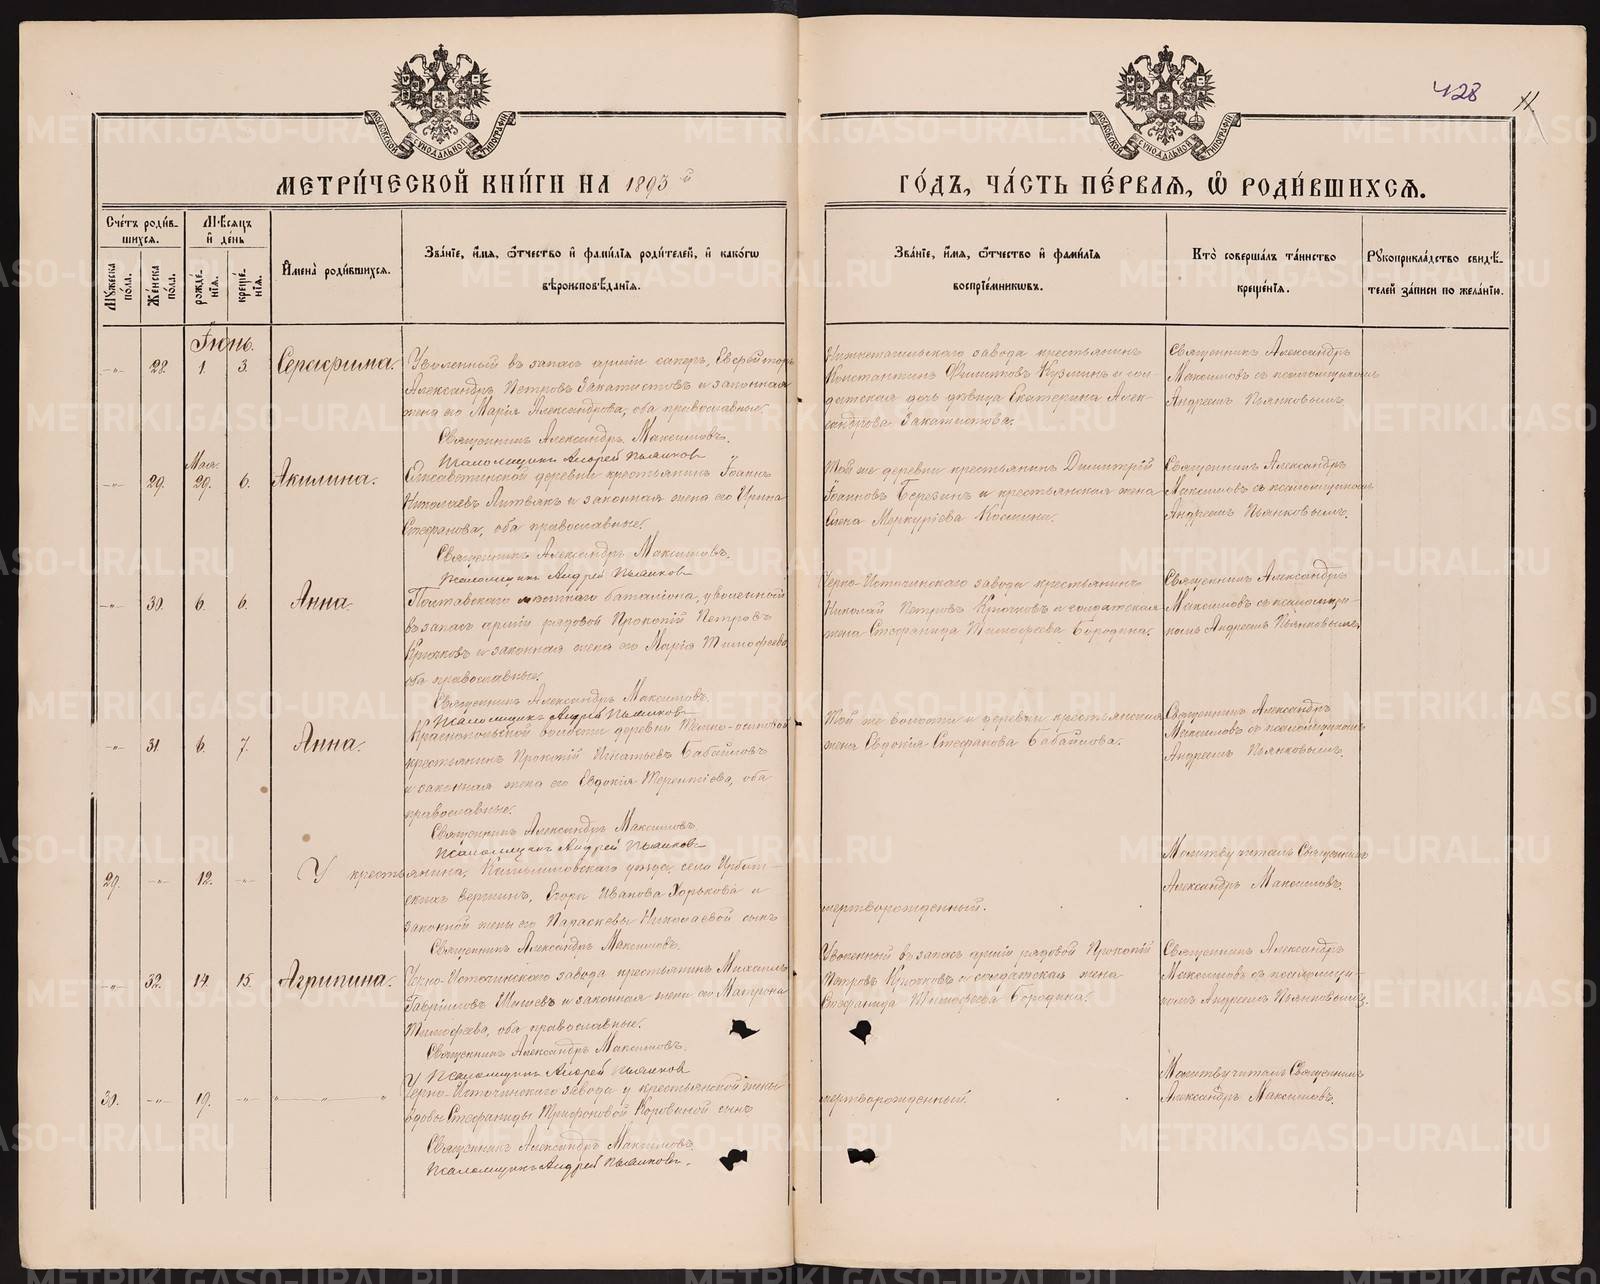 428
11
МЕТРИ́ЧЕСКОЙ КНИ́ГИ НА 1893й
ГО́ДЪ, ЧА́СТЬ ПЕ́РВАѦ, Ѡ҆ РОДИ́ВШИХСѦ.
Сче́тъ роди́в-
шихся.
Мѣ́сяцъ
и҆ де́нь
И҆мена̀ роди́вшихся.
Зва́нїе, и҆́мя, ѻ҆́тчество и҆ фами́лїя роди́телей, и҆ како́гѡ
вѣроисповѣ́данїя.
Зва́нїе, и҆́мя, ѻ҆́тчество и҆ фами́лїя
воспрїе́мникѡвъ.
Кто̀ соверша́лъ та́инство
креще́нїя.
Рꙋкоприкла́дство свидѣ́-
телей за́писи по жела́нїю.
Мꙋ́жеска по́ла.
Же́нска по́ла.
рожде́-нїя.
креще́-нїя.
Iюнь.
28. 1. 3. Серафима.
Уволенный въ запас арміи сапер, Ефрейторъ
Александръ Петровъ Закатистовъ и законная
жена его Марія Александрова, оба православные.
Священникъ Александръ Максимовъ.
Псаломщикъ Андрей Пьянковъ
Нижнетагильскаго завода крестьянинъ
Константинъ Филиповъ Кузминъ и сол-
датская дочь дѣвица Екатерина Алек-
сандрова Закатистова.
Священникъ Александръ
Максимовъ съ псаломщикомъ
Андреемъ Пьянковымъ.
Мая.
29. 29. 6. Акилина.
Елисаветинской деревни крестьянинъ Іоаннъ
Николаевъ Литвякъ и законная жена его Ирина
Стефанова, оба православные.
Священникъ Александръ Максимовъ.
Псаломщикъ Андрей Пьянковъ
Той же деревни крестьянинъ Димитрій
Іоанновъ Березинъ и крестьянская жена
Елена Меркуріева Космина.
Священникъ Александръ
Максимовъ съ псаломщикомъ
Андреемъ Пьянковымъ.
30. 6. 6. Анна.
Полтавскаго мѣстнаго баталіона, уволенный
въ запасъ арміи рядовой Прокопій Петровъ
Крючковъ и законная жена его Марія Тимофеева,
оба православные.
Священникъ Александръ Максимовъ.
Псаломщикъ Андрей Пьянковъ
Черно-Источинскаго завода крестьянинъ
Николай Петровъ Крючковъ и солдатская
жена Стефанида Тимофеева Бородина.
Священникъ Александръ
Максимовъ съ псаломщи-
комъ Андреемъ Пьянковымъ.
31. 6. 7. Анна.
Краснопольской волости деревни Темно-осиновой
крестьянинъ Прокопій Игнатьевъ Бабайловъ
и законная жена его Евдокія Терентіева, оба
православные.
Священникъ Александръ Максимовъ
Псаломщикъ Андрей Пьянковъ
Той же волости и деревни крестьянская
жена Евдокія Стефанова Бабайлова.
Священникъ Александръ
Максимовъ съ псаломщикомъ
Андреемъ Пьянковымъ.
29. 12. У крестьянина, Камышловскаго уѣзда, села Ирбит-
скихъ вершинъ, Егора Иванова Хорькова и
законной жены его Параскевы Николаевой сынъ
Священникъ Александръ Максимовъ.
мертворожденный.
Молитву читалъ Священникъ
Александръ Максимовъ.
32. 14. 15. Агрипина.
Черно-Источинскаго завода крестьянинъ Михаилъ
Гавріиловъ Шишевъ и законная жена его Матрона
Тимофеева, оба православные.
Священникъ Александръ Максимовъ.
Псаломщикъ Андрей Пьянковъ
Уволенный въ запасъ арміи рядовой Прокопій
Петровъ Крючковъ и солдатская жена
Стефанида Тимофеева Бородина.
Священникъ Александръ
Максимовъ съ псаломщи-
комъ Андреемъ Пьянковымъ.
30. 19.
Черно-Источинскаго завода у крестьянской жены
вдовы Стефаниды Трифоновой Коровиной сынъ
Священникъ Александръ Максимовъ.
Псаломщикъ Андрей Пьянковъ.
мертворожденный.
Молитву читалъ Священникъ
Александръ Максимовъ.
METRIKI.GASO-URAL.RU